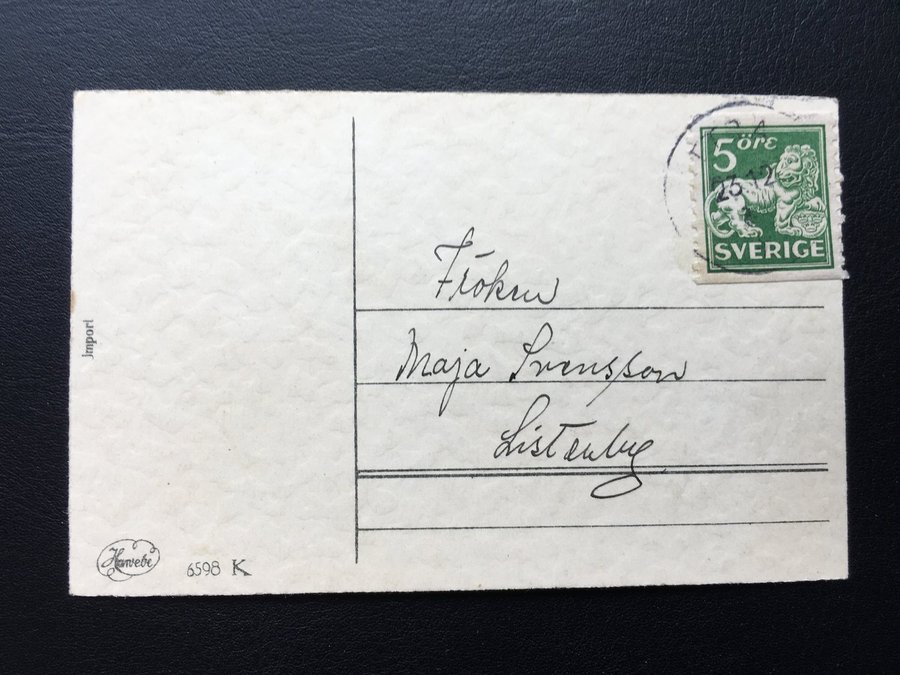 5 öre
23.12
SVERIGE
Fröken
Maja Svensson
Listerby
Import
Hawebe
6598 K